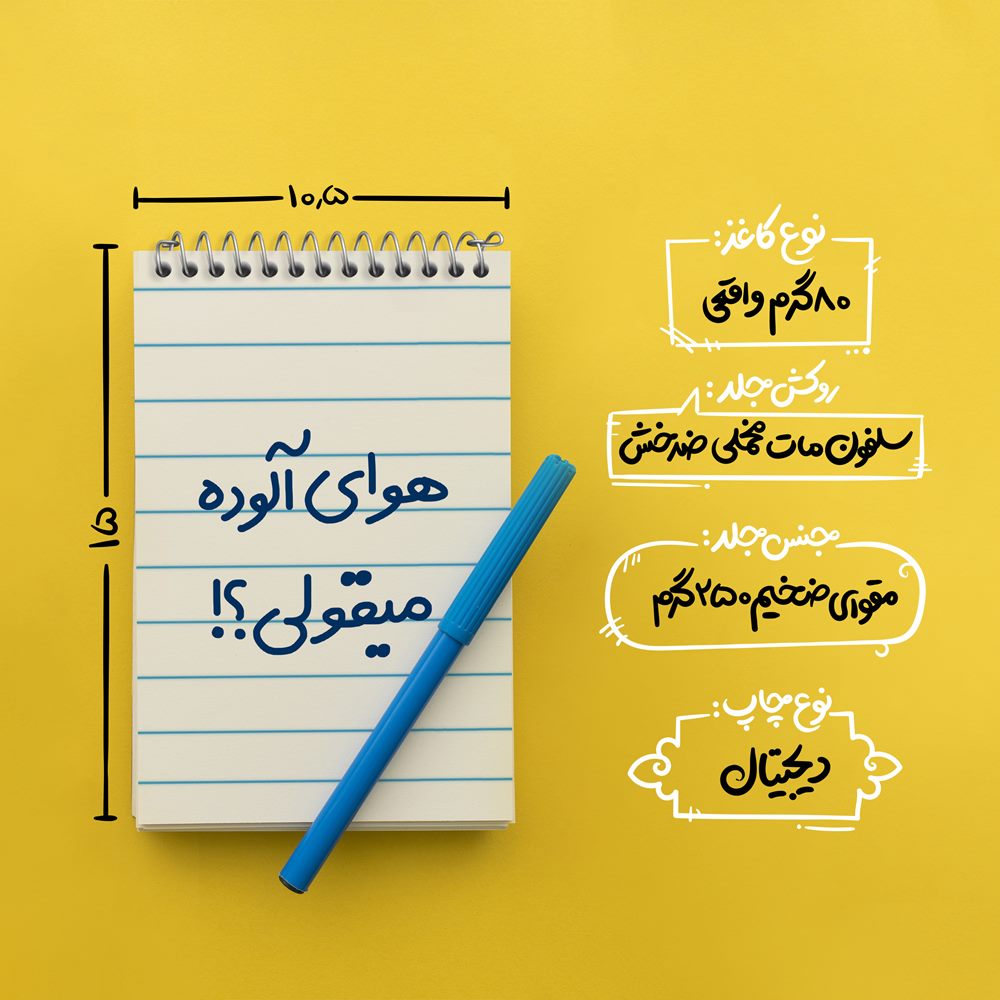 ۱۰٫۵
۱۵
هوای آلوده
میقولی؟!
نوع کاغذ:
۸۰ گرم واقعی
روکش جلد:
سلفون مات مخملی ضدخش
جنس جلد:
مقوای ضخیم ۲۵۰ گرم
نوع چاپ:
دیجیتال